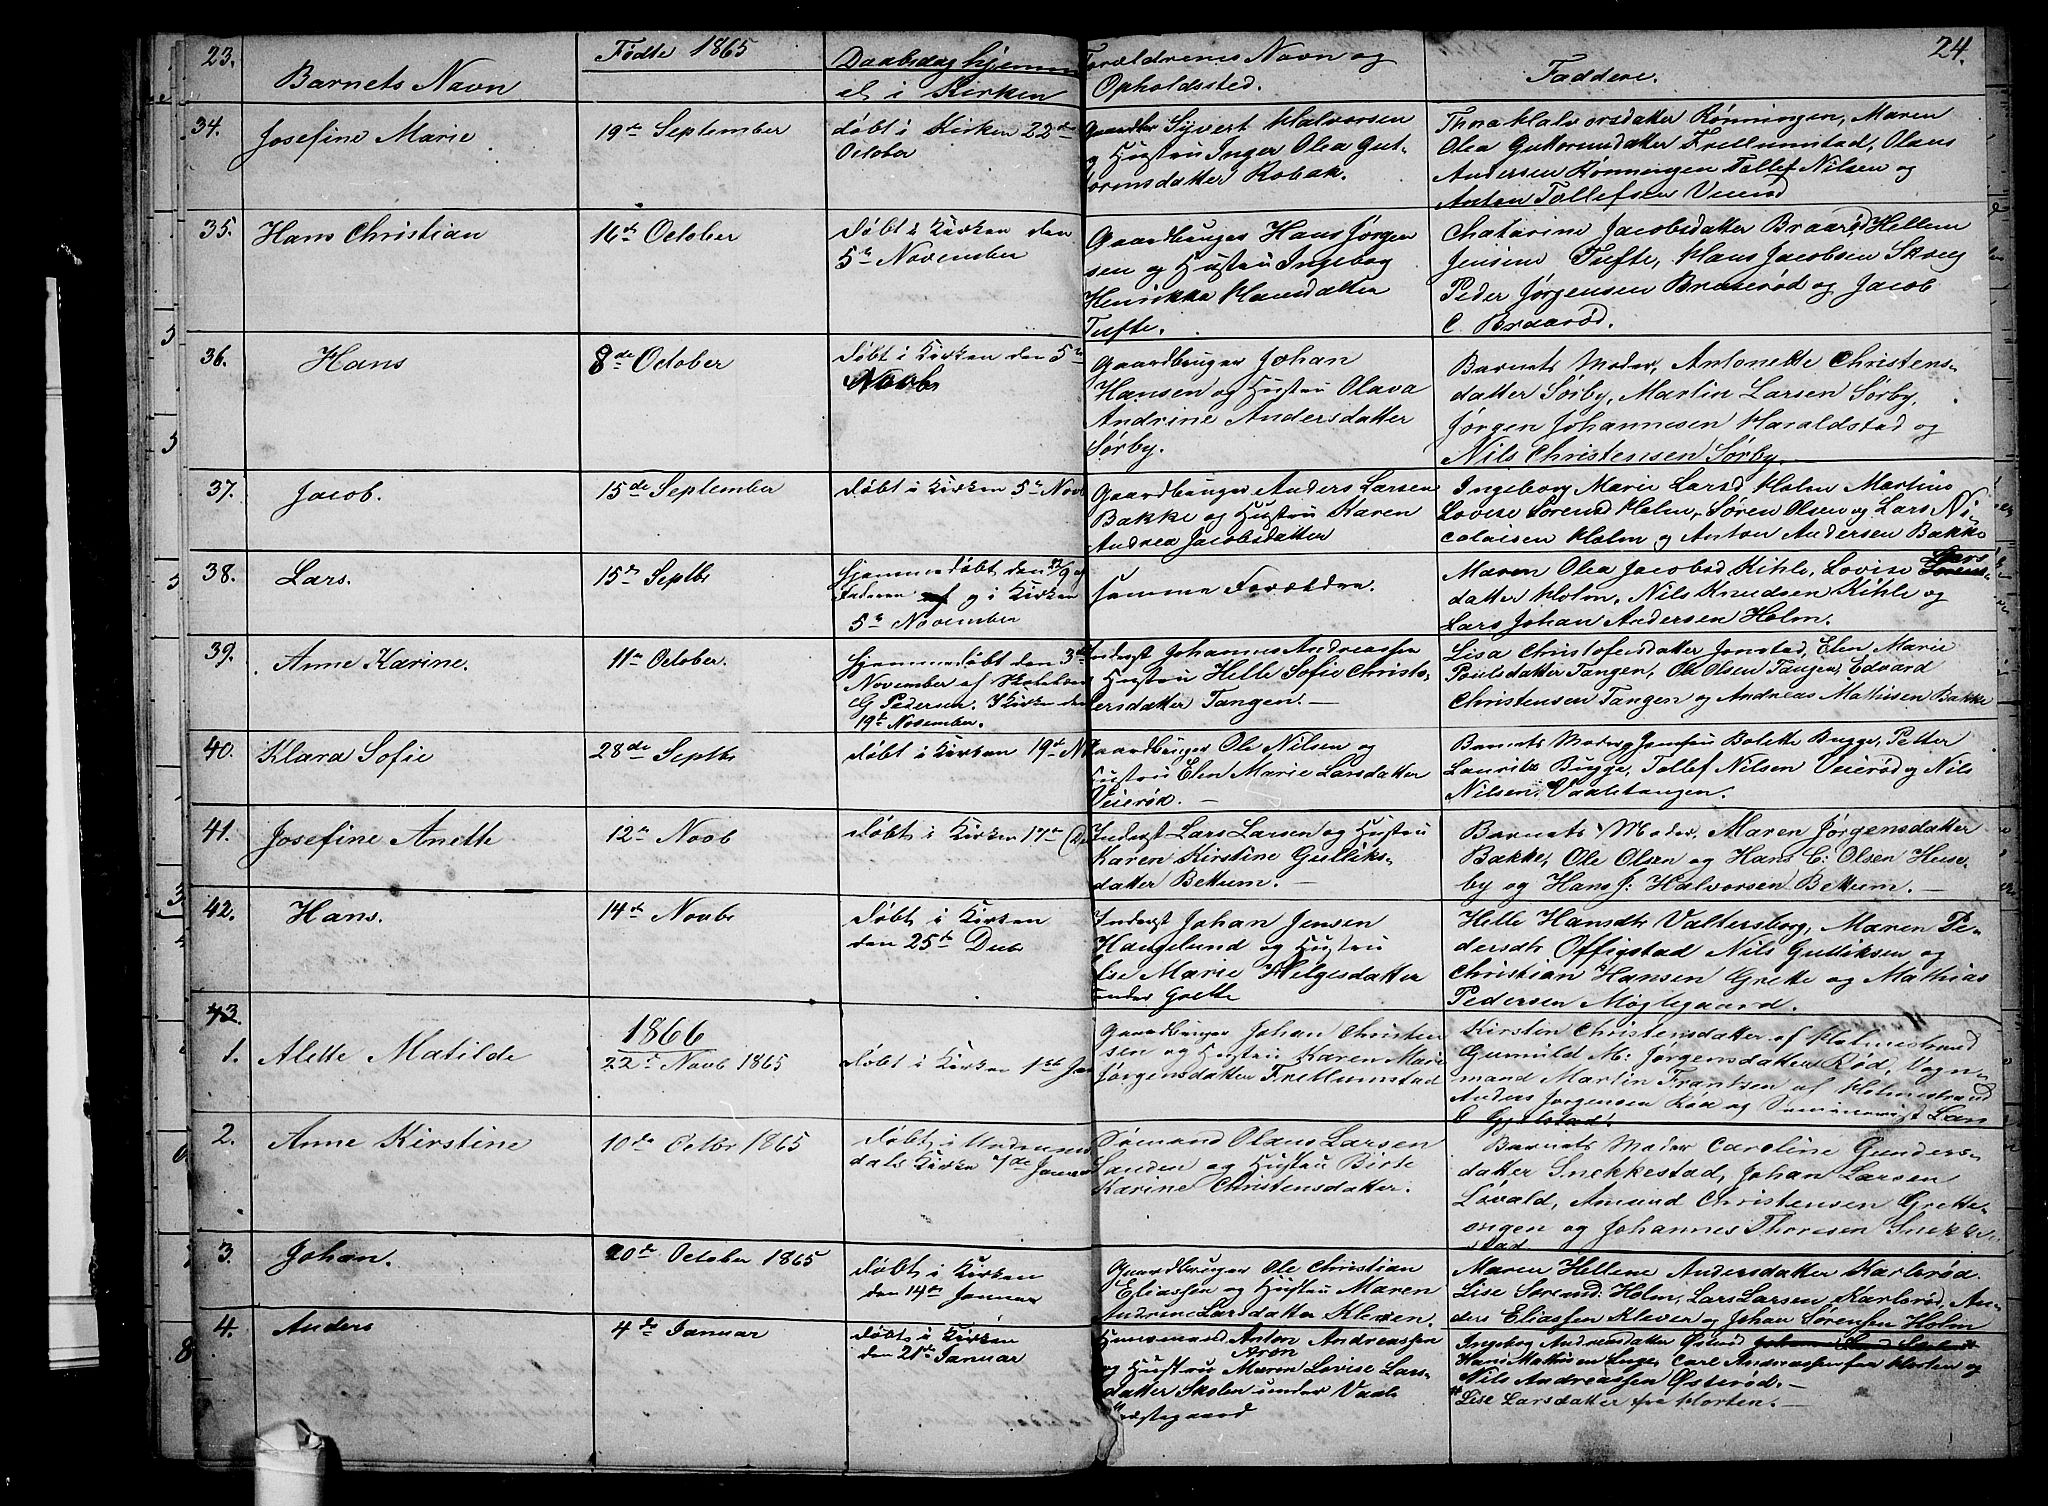 23.
24.
Barnets Navn
Fødte 1865
Daabsdag hjemme
el i Kirken
Forældrenes Navn og
Opholdssted.
Faddere.
34.
Josefine Marie
19de September
døbt i Kirken 22de
October
Gaardbr Syvert Halvorsen
og Hustru Inger Olea Gut-
tormsdatter Robak.
Thina Halvorsdatter Rønningen, Maren
Olea Guttormsdatter Frellumstad, Olaus
Andersen Rønningen Tollef Nilsen og
Anton Tollefsen Veierød
35.
Hans Christian
16de October
døbt i Kirken den
5te November
Gaardbruger Hans Jørgen
sen og Hustru Ingebog
Henrikka Hansdatter
Tufte.
Chatarine Jacobsdatter Braarød, Hellene
Jensene Tufte, Hans Jacobsen Skoug
Peder Jørgensen Braserød og Jacob
C. Braarød.
36.
Hans
8de October
døbt i Kirken den 5te
Novbr
Gaardbruger Johan
Hansen og Hustru Olava
Andrine Andersdatter
Sørby.
Barnets Moder, Antonette Christens-
datter Sørby, Martin Larsen Sørby,
Jørgen Johannesen Haraldstad og
Nils Christensen Sørby
37.
Jacob.
15de September
døbt i Kirken 5te Novb
Gaardbruger Anders Larsen
Bakke og Hustru Karen
Andrea Jacobsdatter
Ingeborg Marie Larsd Holm Martins
Lovise Sørensd Holm, Søren Olsen og Lars Ni-
colaisen Holm og Anton Andersen Bakke
38.
Lars.
15de Septbr
Hjemmedøbt den 22/9 af
Faderen og i Kirken
5te November
samme Forældre.
Maren Olea Jacobsd Kihle, Lovise Lars
datter Holm, Nils Knudsen Kihle og
Lars Johan Andersen Holm.
39.
Anne Karine.
11te October.
Hjemmedøbt den 3die
November af Skolelær
G Pedersen. I Kirken den
19de November.
Inderst Johannes Andreassen
og Hustru Helle Sofie Christo-
fersdatter Tangen.
Lisa Christofersdatter Jonstad, Elen Marie
Poulsdatter Tangen, Ole Olsen Tangen, Edvard
Christensen Tangen og Andreas Mathisen Bakke
40.
Klara Sofie
28de Septbr
døbt i Kirken 19de N
Gaardbruger Ole Nilsen og
Hustru Elen Marie Larsdatter
Veierød.
Barnets Moder, Jomfru Bolette Bugge, Petter
Lauritz Bugge, Tollef Nilsen Veierød og Nils
Nilsen Vaaletangen.
41.
Josefine Anette
12te Novb
døbt i Kirken 17de (De
Inderst Lars Larsen og Hustru
Karen Kirstine Gulliks-
datter Bettum.
Barnets Moder, Maren Jørgensdatter
Bakke, Ole Olsen og Hans C: Olsen Huse-
by og Hans J: Halvorsen Bettum.
42.
Hans.
14de Novbr
døbt i Kirken
den 25de Decbr
Inderst Johan Jensen
Haugelund og Hustru
Else Marie Helgesdatter
under Grette
Helle Hansdtr Valtersborg, Maren Pe-
dersdtr Offigstad Nils Gulliksen og
Christian Hansen Grette og Mathias
Pedersen Møglegaard.
43.
1866
1.
Alette Matilde
22de Novb 1865
døbt i Kirken 1ste Jan
Gaardbruger Johan Christen
sen og Hustru Karen Marie
Jørgensdatter Fretlumstad
Kirsten Christensdatter af Holmestrand
Gunnild M: Jørgensdatter Rød, Vogn-
mand Martin Frantsen af Holmestrand
Anders Jørgensen Rød og Lars
C Gjelstad.
2.
Anne Kirstine
10de Octbr 1865
døbt i
dals Kirke 7de Januar
Sømand Olaus Larsen
Sanden og Hustru Birte
Karine Christensdatter.
Barnets Moder Caroline Gunders-
datter Snekkestad, Johan Larsen
Løvald, Amund Christensen Grette-
ongen og Johannes Thoresen Snekke
stad
3.
Johan.
20de October 1865
døbt i Kirken
den 14de Januar
Gaardbruger Ole Christian
Eliassen og Hustru Maren
Andrine Larsdatter Kleven.
Maren Hellene Andersdatter Karlsrød.
Lise Sørensd: Holm, Lars Larsen Karlsrød, An-
ders Eliassen Klever og Johan Sørensen Holm
4.
Anders
4de Januar
døbt i Kirken
den 21de Januar
Huusmand Anton Andreassen
Aron
og Hustru Maren Lovise Lars-
datter Skolen under Vaale
Præstegaard
Ingeborg Andreasdatter Østrød
Hans Mathisen Carl Andreassen fra Horten og
Nils Andreassen Østerød.
Lise Larsdatter fra Horten.